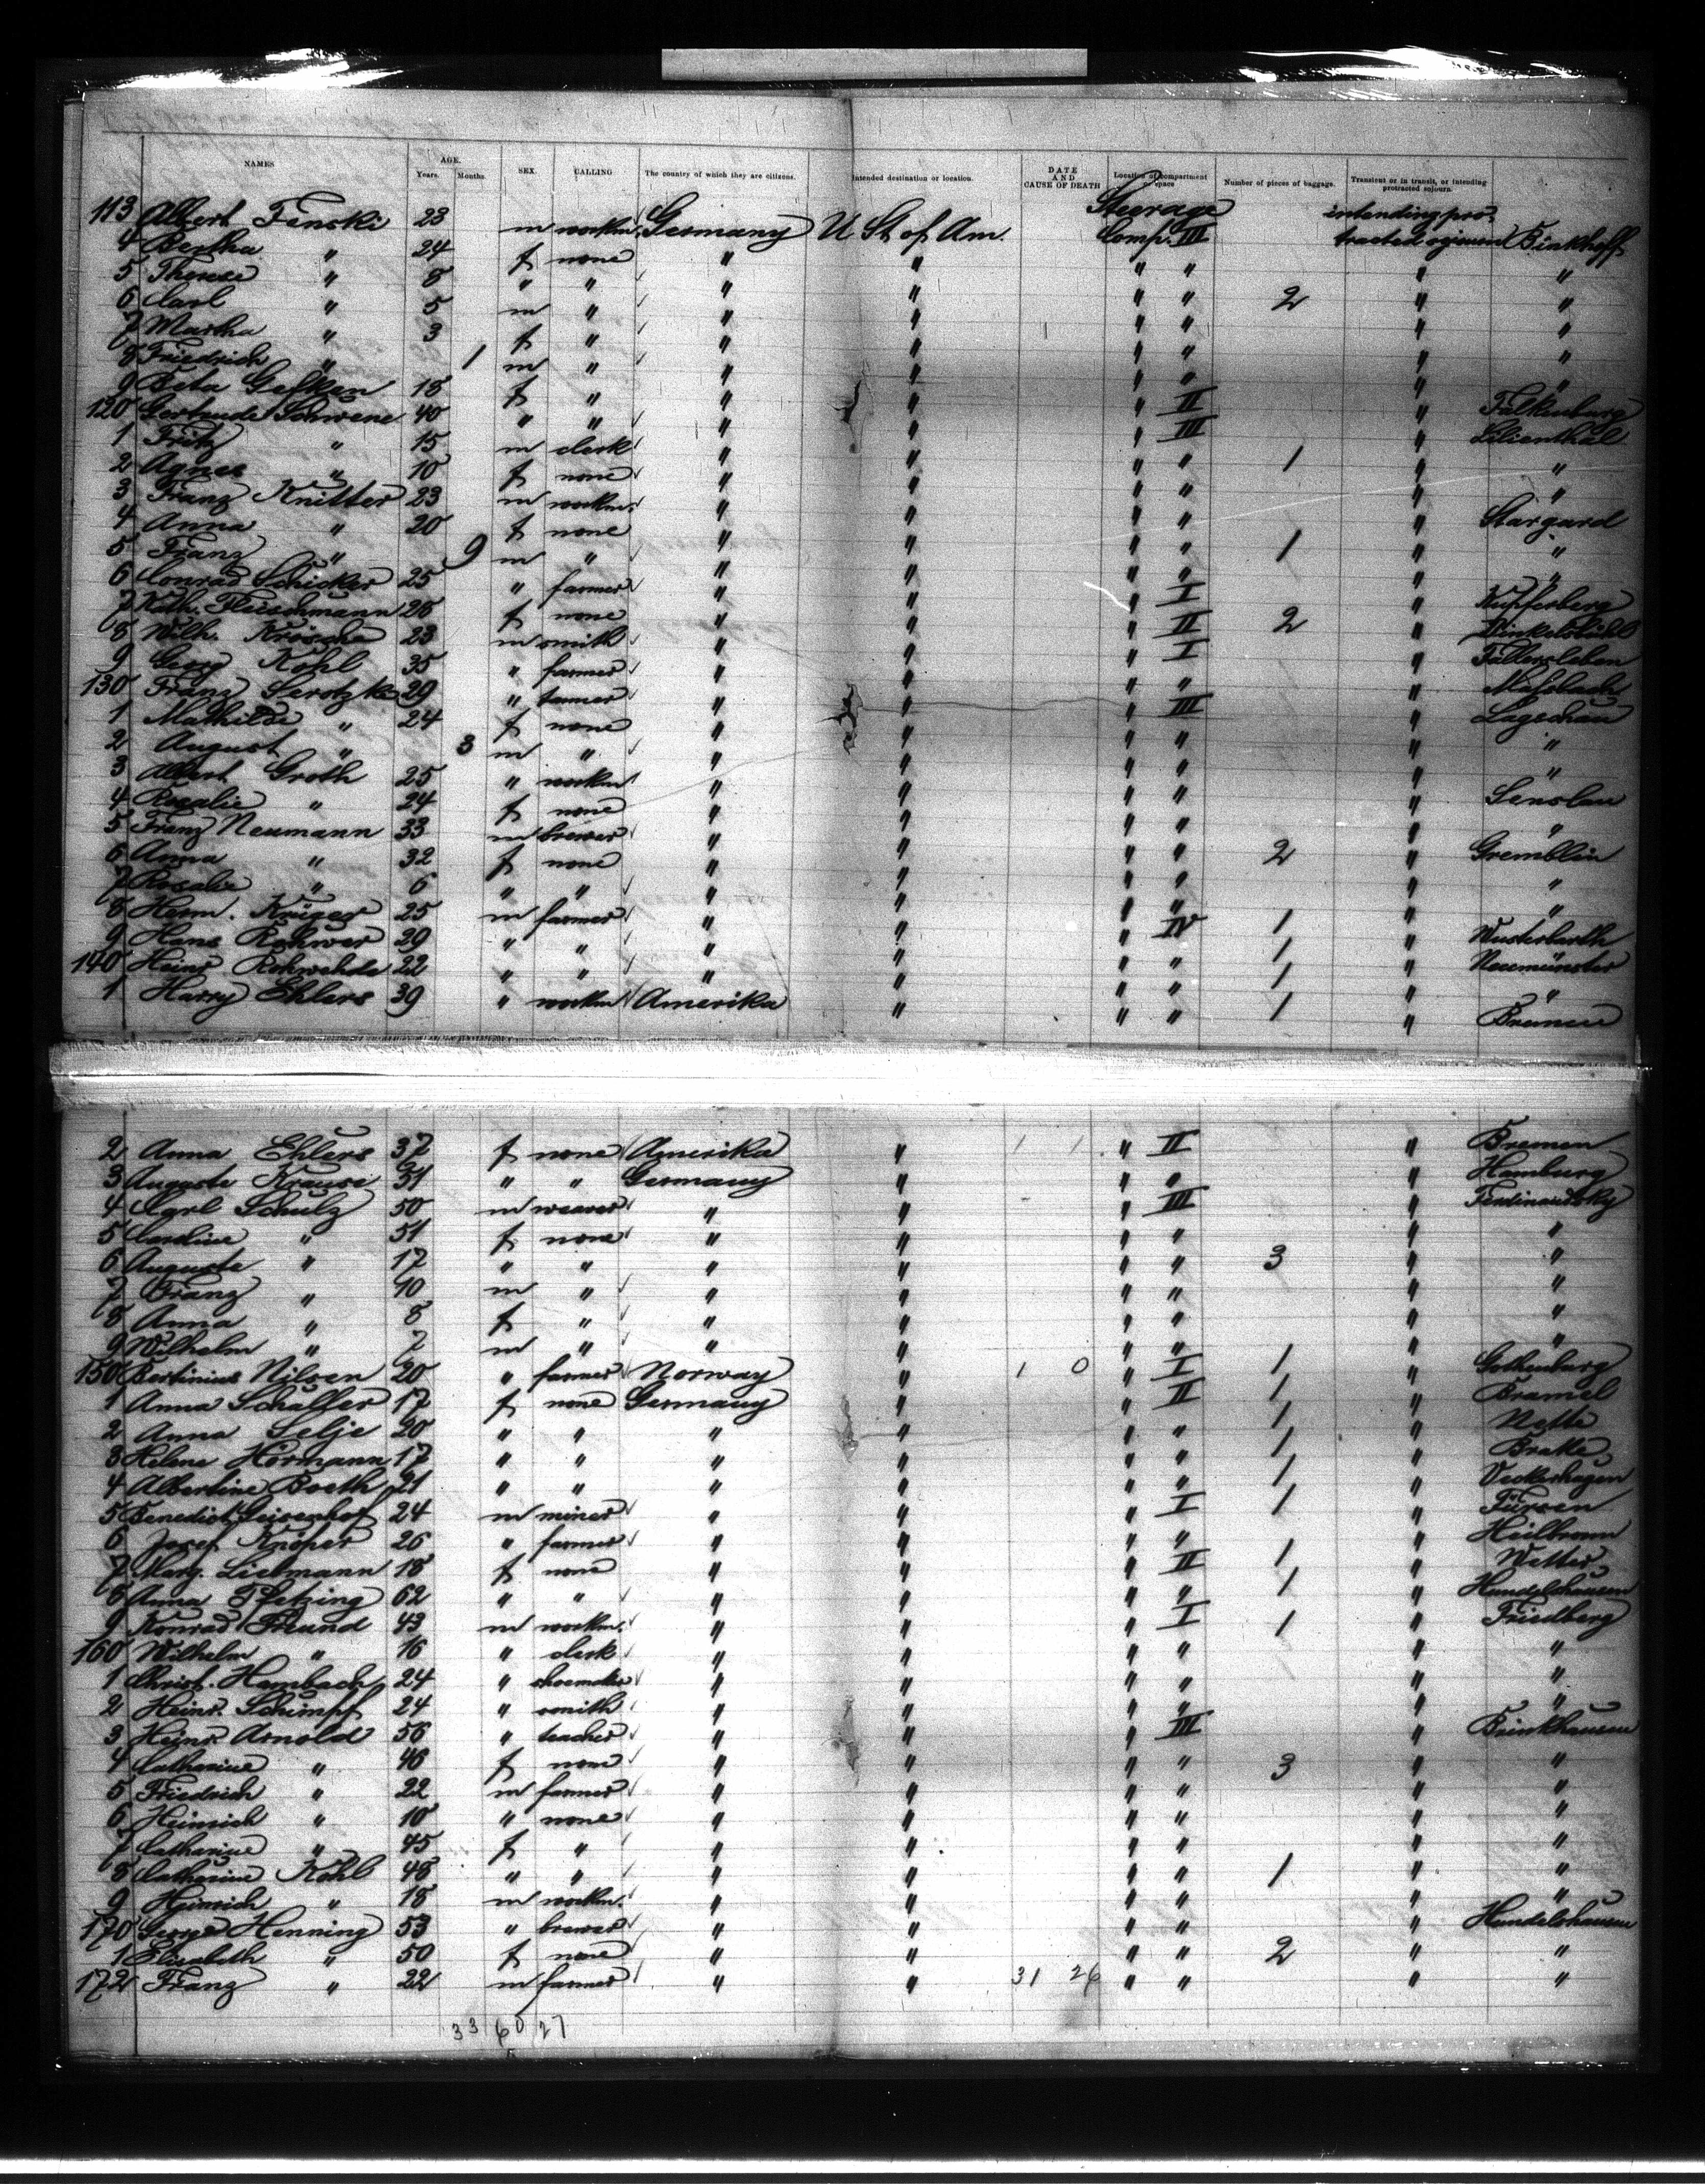 NAMES AGE. Years. Months. SEX. CALLING The country of which they are citizens. Intended destination or location. DATE AND CAUSE OF DEATH Location of compartment or space Number of pieces of baggage. Transient or in transit, or intending protracted sojourn.
113 Albert Fenski 23 m workm. Germany U St of Am. Steerage Comp. III intending protracted sojourn
4 Bertha " 24 f none " " " " " "
5 Therese " 8 " " " " " " " "
6 Carl " 5 m " " " " " 2 " "
7 Martha " 3 f " " " " " " "
8 Friedrich " 1 m " " " " " " "
9 Beta Gefken 18 f " " " " II " Falkenburg
120 Gertrude Schwene 40 " " " " " III " Lilienthal
1 Fritz " 15 m clerk " " " " 1 " "
2 Agnes " 10 f none " " " " " "
3 Franz Knitter 23 m workm. " " " " " Stargard
4 Anna " 20 f none " " " " 1 " "
5 Franz " 9 m " " " " " " "
6 Conrad Schicker 25 " farmer " " " I " Kupferberg
7 Kath. Fleischmann 28 f none " " " II 2 " Dinkelsbühl
8 Wilh. Krösche 23 m smith " " " I " Fallersleben
9 Georg Kohl 35 " farmer " " " " " Massbach
130 Franz 29 " " " " III " Lagschau
1 Mathilde " 24 f none " " " " " "
2 August " 3 m " " " " " " "
3 Albert Groth 25 " workm " " " " " Senslau
4 Rosalie " 24 f none " " " " " "
5 Franz Neumann 33 m brewer " " " " 2 " Gremblin
6 Anna " 32 f none " " " " " "
7 Rosalie " 6 " " " " " " " "
8 Herm. Krüger 25 m farmer " " " IV 1 " Wusterbarth
9 Hans Rohwer 29 " " " " " " 1 " Neumünster
140 Heinr Rohwehde 22 " " " " " " 1 " "
1 Harry Ehlers 39 " workm Amerika " " " 1 " Bremen
2 Anna Ehlers 37 f none Amerika " 1 1 " II " Bremen
3 Auguste Krause 31 " " Germany " " " " Hamburg
4 Carl Schulz 50 m weaver " " " III "
5 Caroline " 51 f none " " " " " "
6 Auguste " 17 " " " " " " 3 " "
7 Franz " 10 m " " " " " " "
8 Anna " 8 f " " " " " " "
9 Wilhelm " 7 m " " " " " " "
150 Bertinius Nilsen 20 " farmer Norway " 1 0 " I 1 " Gothenburg
1 Anna Schäffer 17 f none Germany " " II 1 " Bramel
2 Anna Selje 20 " " " " " " 1 " Nette
3 Helene Hörmann 17 " " " " " " 1 " Brake
4 Albertine Boeth 21 " " " " " " 1 " Veckerhagen
5 Benedict Geisenhof 24 m miner " " " I 1 " Füssen
6 Josef Knöper 26 " farmer " " " " " Heilbronn
7 Marg. Liebmann 18 f none " " " II 1 " Wetter
8 Anna Pfetzing 62 " " " " " " 1 " Hundelshausen
9 Konrad Freund 43 m workm. " " " I 1 " Friedberg
160 Wilhelm " 16 " clerk " " " " " "
1 Christ. Hambach 24 " shoemaker " " " " " "
2 Heinr. Schimpf 24 " smith " " " " " "
3 Heinr. Arnold 56 " teacher " " " III " Brinkhausen
4 Catharine " 46 f none " " " " 3 " "
5 Friedrich " 22 m farmer " " " " " "
6 Heinrich " 10 " none " " " " " "
7 Catharine " 45 f " " " " " " "
8 Catharine Kohl 48 " " " " " " 1 " "
9 Heinrich " 18 m workm. " " " " " "
170 George Henning 53 " brewer " " " " " Hundelshausen
1 Elisabeth " 50 f none " " " " 2 " "
172 Franz " 22 m farmer " " 31 26 " " " "
33 60 27